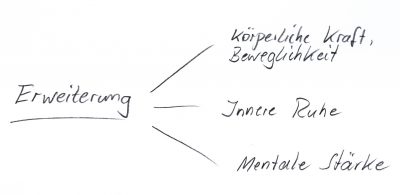 Körperliche Kraft,
Beweglichkeit
Erweiterung
Innere Ruhe
Mentale Stärke